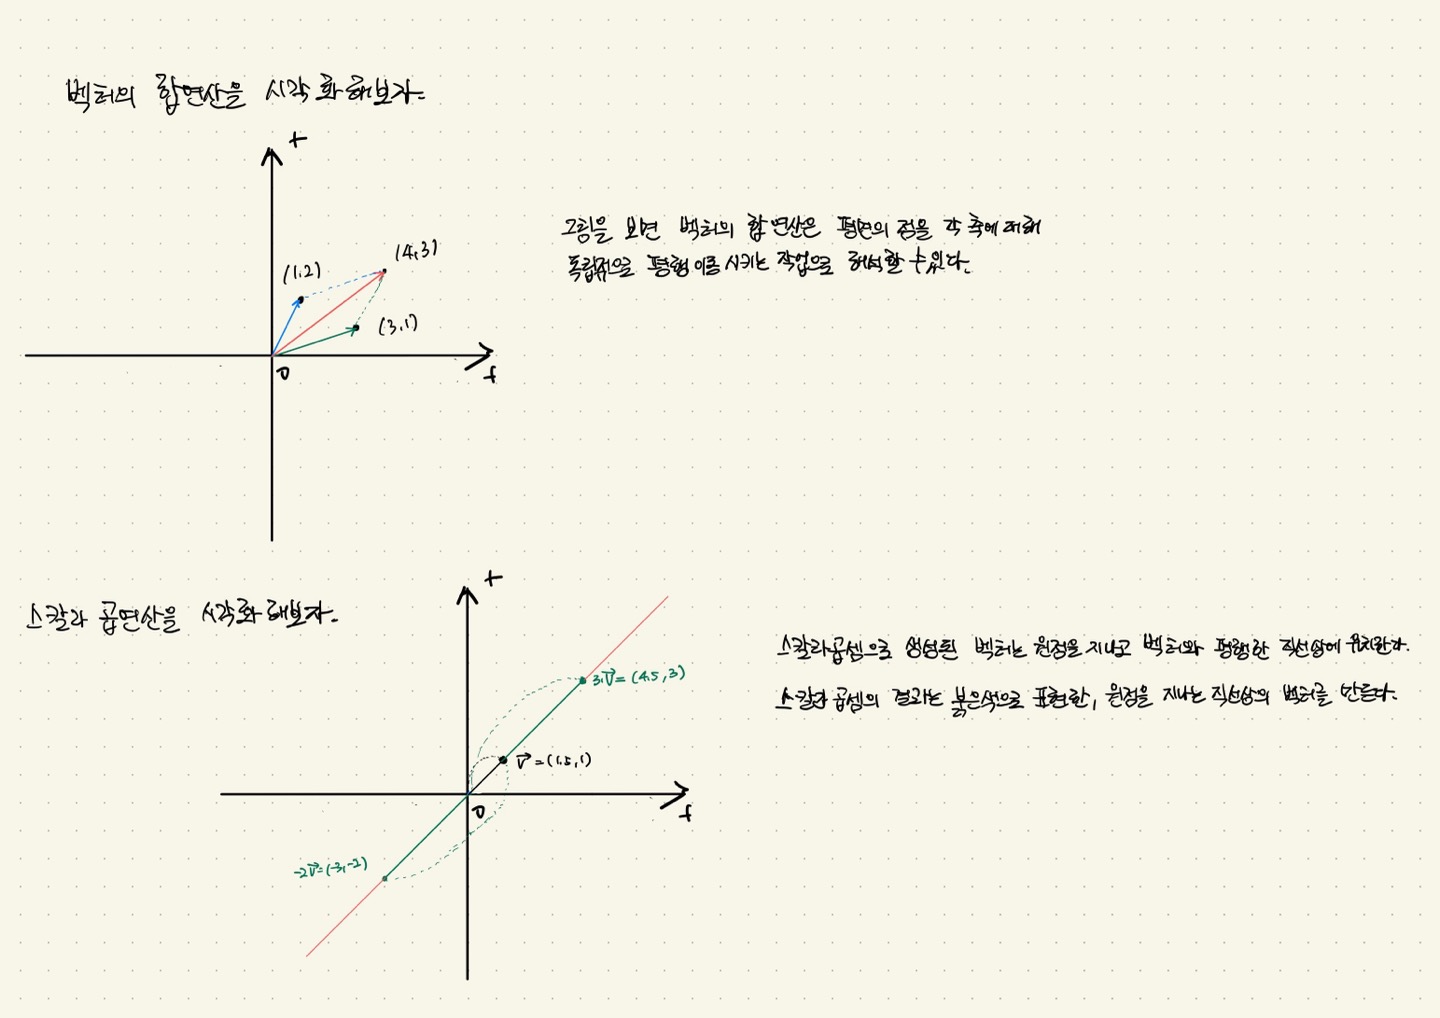 벡터의 합연산을 시각화해보자.
+
(4,3)
(1,2)
(3,1)
0
+
그림을 보면 벡터의 합연산은 평면의 점을 각 축에 대해
독립적으로 평행이동 시키는 작업으로 해석할 수 있다.
스칼라 곱연산을 시각화 해보자.
+
3v⃗=(4.5,3)
v⃗=(1.5,1)
0
+
-2v⃗=(-3,-2)
스칼라곱셈으로 생성된 벡터는 원점을 지나고 벡터와 평행한 직선상에 위치한다.
스칼라 곱셈의 결과는 붉은색으로 표현한, 원점을 지나는 직선상의 벡터를 만든다.